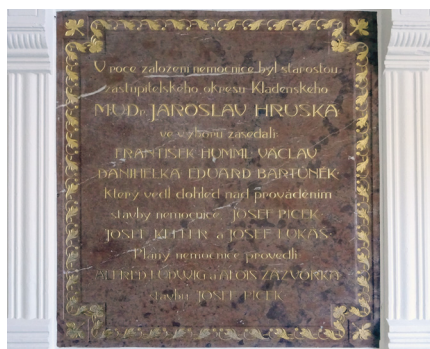 V roce založení nemocnice byl starostou
zastupitelského okresu Kladenského
MUDr. JAROSLAV HRUŠKA
ve výboru zasedali:
FRANTIŠEK HUMML VÁCLAV
DANIHELKA EDUARD BARTŮNĚK
Který vedl dohled nad prováděním
stavby nemocnice. JOSEF PICEK
JOSEF a JOSEF LUKÁŠ
Plány nemocnice provedli
ALFRED LUDWIG a ALOIS ZÁZVORKA
stavbu JOSEF PICEK